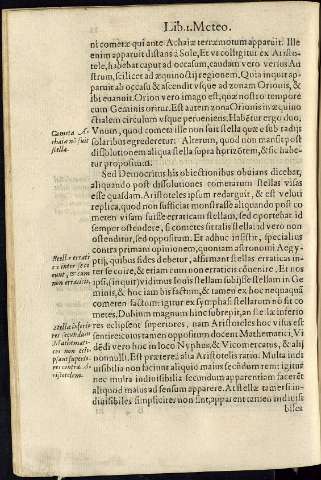 Lib. 1. Meteo.
ni cometæ qui ante Achaiæ terræmotum apparuit. Ille
enim apparuit distans à Sole, Et vt colligitur ex Aristo-
tele, habebat caput ad occasum, caudam vero versus Au
strum, scilicet ad æquinoctij regionem. Quia inquit ap-
paruit ab occasu & ascendit vsque ad zonam Orionis, &
ibi euanuit. Orion vero imago est, quæ nostro tempore
cum Geminis oritur. Est autem zona Orionis in æquino
ctialem circulum vsque perueniens. Habetur ergo duo,
Vnum, quod cometa ille non fuit stella quæ è sub radijs
solaribus egrederetur: Alterum, quod non mansit post
dissolutionem aliqua stella supra horizõtem, & sic habe-
tur propositum.
Sed Democritus his obiectionibus obuians dicebat,
aliquando post dissolutiones cometarum stellas visas
esse quasdam. Aristoteles ipsum redarguit, & est veluti
replica, quod non sufficiat monstrasse aliquando post co
meten visam fuisse erraticam stellam, sed oportebat id
semper ostendere, si cometes sit talis stella: id vero non
ostenditur, sed oppositum. Et adhuc insistit, specialius
contra primam opinionem, quoniam astronomi Aegy-
ptij, quibus fides debetur, affirmant stellas erraticas in-
ter se coire, & etiam cum non erraticis cõuenire, Et nos
ipsi, (inquit) vidimus Iouis stellam subijsse stellam in Ge
minis, & hoc iam bis factum, & tamen ex hoc nequaquã
cometen factum: igitur ex symphasi stellarum nõ fit co
metes. Dubium magnum hinc subrepit, an stellæ inferio
res eclipsent superiores, nam Aristoteles hoc visus est
sentire: cotus tamen oppositum docent Mathematici, Vi
dedi vero hoc in loco Nyphus, & Vicomercatus, & alij
nonnulli. Est præterea alia Aristotelis ratio. Multa indi
uisibilia non faciunt aliquid maius secundum rem: igitur
nec multa indiuisibilia secundum apparentiam facerẽt
aliquod maius ad sensum apparere. At stellæ tametsi in-
diuisibiles simpliciter non sint, apparent tamen indiuisi
biles
Cometa A-
chaia nõ fuit
stella.
Stellæ errati
cæ inter se co
eunt, & cum
non erraticis.
Stellas inferio
res secundum
Mathemati-
cos non ecli-
psant superio
res contra A-
ristotelem.